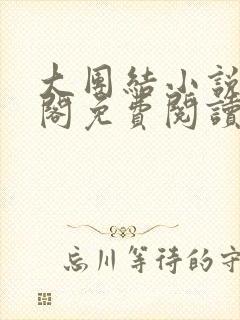 大團結小說
閣免費閱讀
忘川等待的守